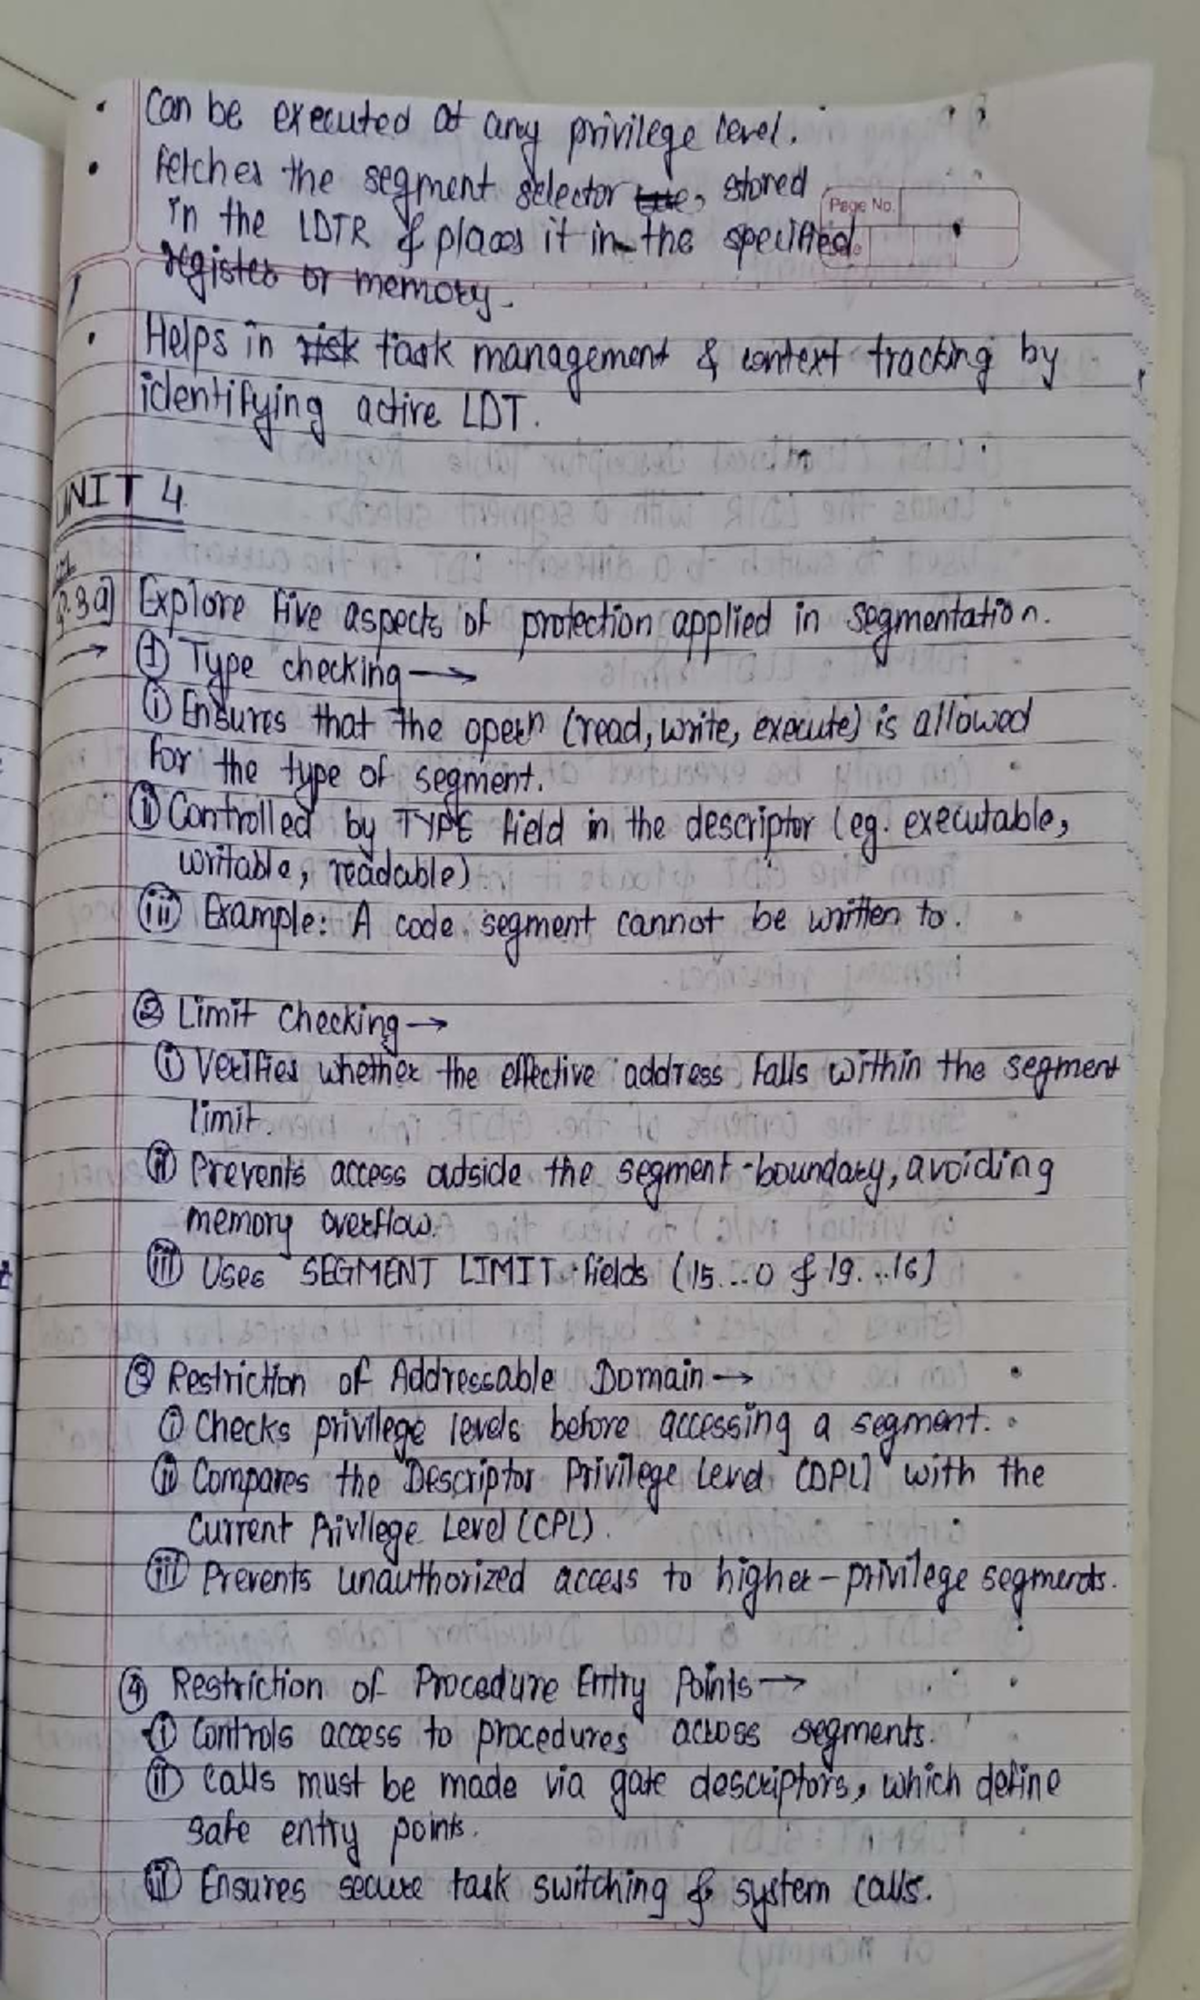 • Can be executed at any privilege level.
• Fetches the segment selector, stored
Page No.
in the LDTR & places it in the specified
register or memory.
• Helps in risk task management & context tracking by
identifying active LDT.
UNIT 4
Q.3a) Explore five aspects of protection applied in segmentation.
→ ① Type checking →
(i) Ensures that the opern (read, write, execute) is allowed
for the type of segment.
(ii) Controlled by TYPE field in the descriptor (eg. executable,
writable, readable)
(iii) Example: A code segment cannot be written to.
② Limit checking →
(i) Verifies whether the effective address falls within the segment
limit.
(ii) Prevents access outside the segment-boundary, avoiding
memory overflow.
(iii) Uses SEGMENT LIMIT fields (15...0 & 19...16)
③ Restriction of Addressable Domain →
(i) Checks privilege levels before accessing a segment.
(ii) Compares the Descriptor Privilege Level (DPL) with the
Current Privilege Level (CPL).
(iii) Prevents unauthorized access to higher-privilege segments.
④ Restriction of Procedure Entry Points →
(i) Controls access to procedures across segments.
(ii) Calls must be made via gate descriptors, which define
safe entry points.
(iii) Ensures secure task switching & system calls.